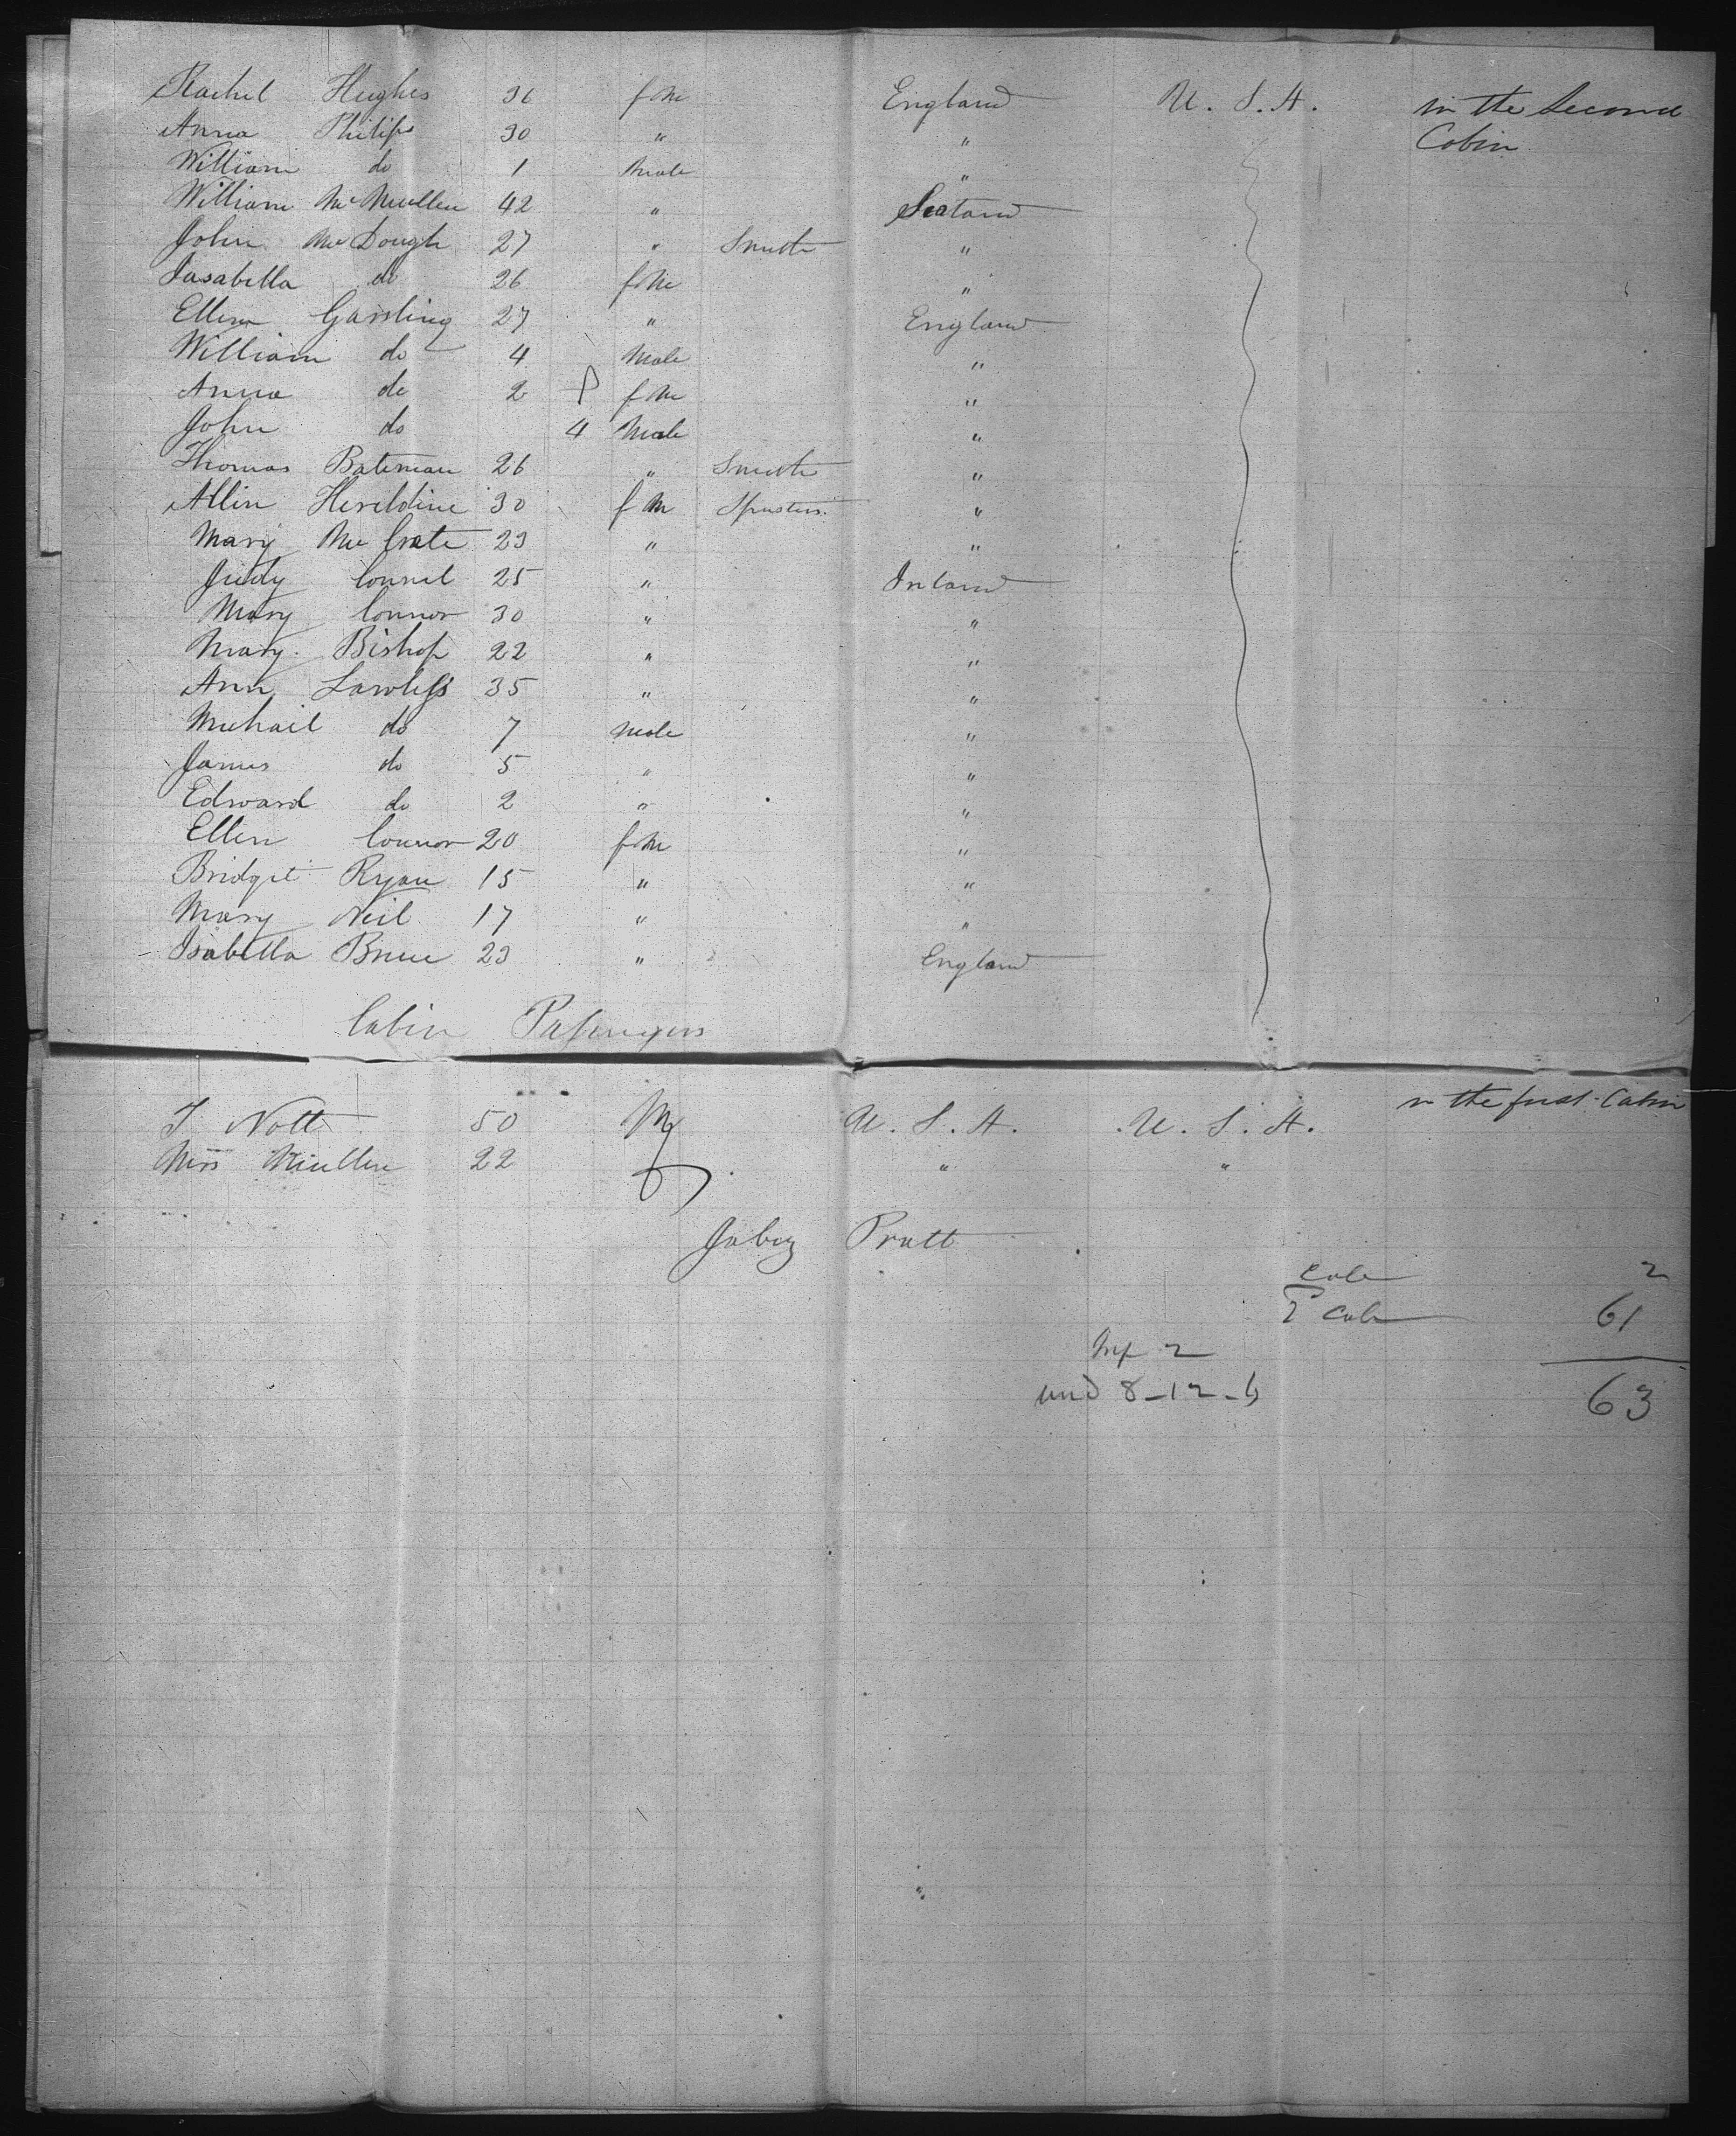 Rachel Hughes 36 f m England U. S. A. in the Second
Anna Philips 30 " " Cabin
William do 1 Male "
William McMullen 42 " Scotand
John McDough 27 " Smith "
Isabella do 26 f m "
Ellen Garsling 27 " England
William do 4 Male "
Anna do 2 f m "
John do 4 Male "
Thomas Bateman 26 " Smith "
Allin Heseldine 30 f m Spinster "
Mary Mc Crate 23 " "
Judy Connel 25 " Ireland
Mary Connor 30 " "
Mary Bishop 22 " "
Ann Lawless 35 " "
Michail do 7 Male "
James do 5 " "
Edward do 2 " "
Ellen Connor 20 f m "
Bridget Ryan 15 " "
Mary Neil 17 " "
Isabella Bruce 23 " England
Cabin Passengers
in the first Cabin
T Nott 50 M U. S. A. U. S. A.
Miss Mullen 22 f " "
Jabez Pratt
Cab 2
2 Cab 61
Inf 2
und 8 - 12 - 6 63